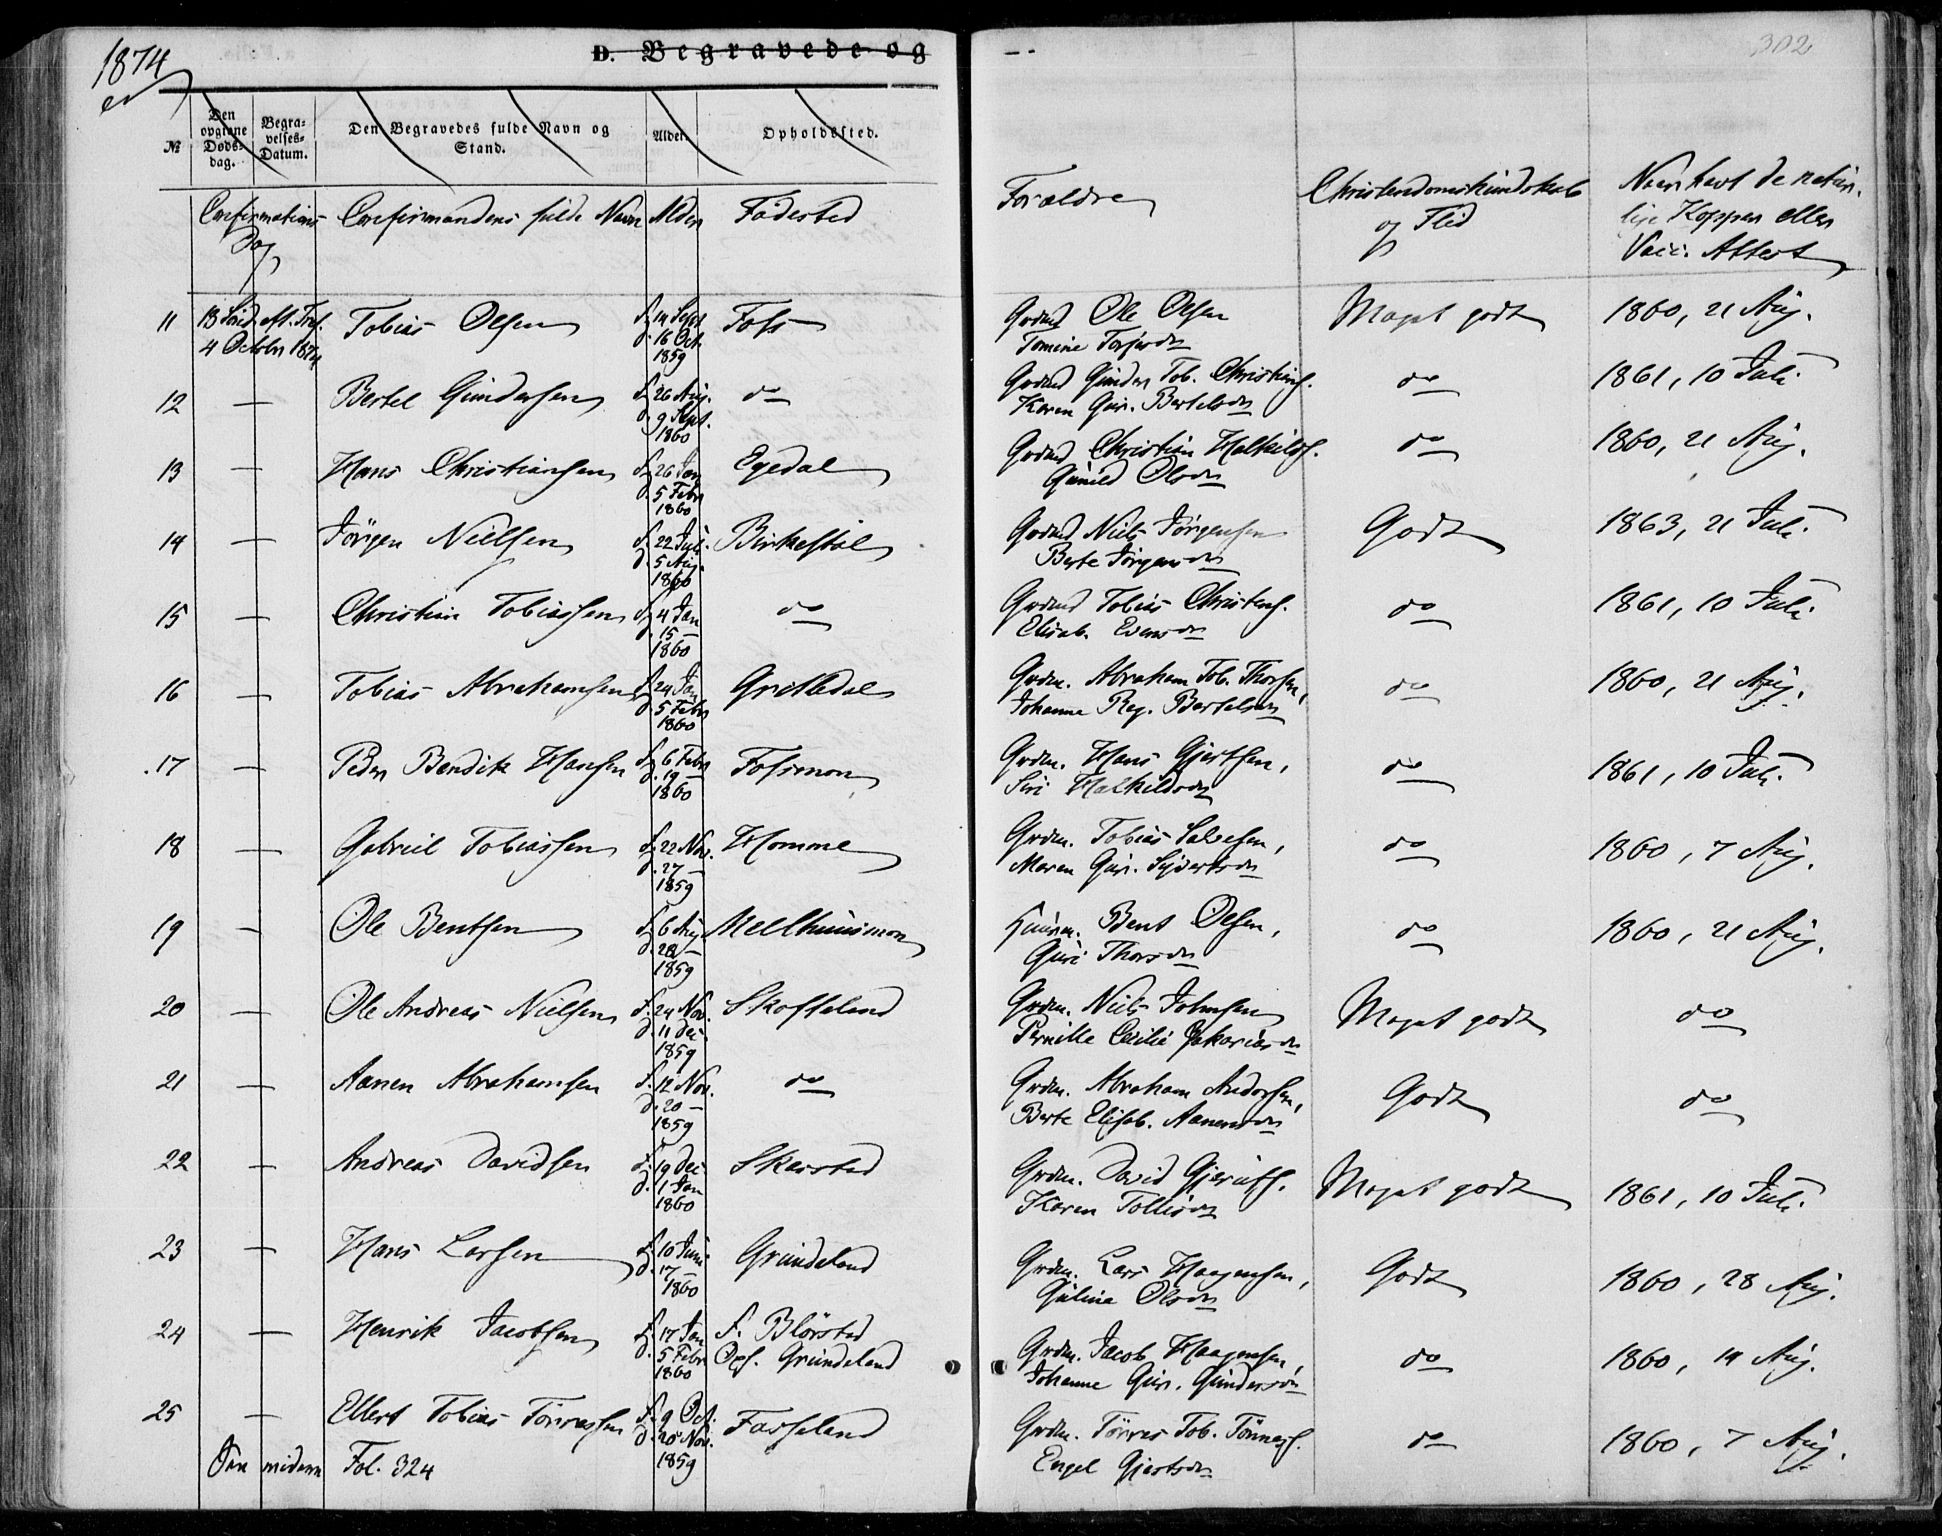 1874
D. Begravede og
302
№
Den opgivne Døds-dag.
Begra-velses-Datum.
Den Begravedes fulde Navn og Stand.
Alder.
Opholdssted.
Confirmations Dag
Confirmandens fulde Navn
Alder
Fødested
Forældre
Christendomskundskab og Flid
Naar havt de natur-lige Kopper eller Vacc. Attest
11 13 Sønd. eft. Tref. 4 October 1874 Tobias Olsen f. 14 Sept d. 16 Oct. 1859 Foss Grdmd Ole Olsen Tomine Torjusdn Meget godt 1860, 21 Aug.
12 — Bertel Gundersen f. 26 Aug. d. 9 Sept. 1860 do Grdmd Gunder Tob. Christians. Karen Gur. Bertelsdn do 1861, 10 Juli
13 — Hans Christiansen f. 26 Jan d. 5 Febr 1860 Egedal Grdmd Christian Halkilds. Gunild Olsdn do 1860, 21 Aug.
14 — Jörgen Nielsen f. 22 Jul. d. 5 Aug. 1860 Birkestöl Grdmd Niels Jörgensen Berte Jörgensdn Godt 1863, 21 Juli
15 — Christian Tobiassen f. 4 Jan d. 15 — 1860 do Grdmd Tobias Christens. Elisab. Evensdn do 1861, 10 Juli
16 — Tobias Abrahamsen f. 24 Jan d. 5 Febr 1860 Gritledal Grdm. Abraham Tob. Thorsen, Johanne Reg. Bertelsdn do 1860, 21 Aug.
17 — Peder Bendik Hansen f. 6 Febr d. 19 — 1860 Fossmon Grdm. Hans Gjertsen, Siri Halkildsdn do 1861, 10 Juli
18 — Gabriel Tobiassen f. 22 Nov. d. 27 — 1859 Homme Grdm. Tobias Salvesen, Maren Gur. Sivertsdn do 1860, 7 Aug.
19 — Ole Bentsen f. 6 Aug d. 28 — 1859 Mellhuusmon Huusm. Bent Olsen, Guri Thorsdn do 1860, 21 Aug.
20 — Ole Andreas Nielsen f. 24 Nov. d. 11 Dec. 1859 Skofteland Grdm. Niels Johnsen Pernille Cecilie Zakariasdn Meget godt do
21 — Aanen Abrahamsen f. 12 Nov. d. 20 — 1859 do Grdm. Abraham Andorsen, Berte Elisab. Aanensdn Godt do
22 — Andreas Davidsen f. 19 Dec d. 1 Jan 1860 Skeustad Grdm. David Gjerulfs. Karen Tollisdn Meget godt 1861, 10 Juli
23 — Hans Larsen f. 10 Juni d. 17 — 1860 Grundeland Grdm. Lars Haagensen, Guline Olsdn Godt 1860, 28 Aug.
24 — Henrik Jacobsen f. 17 Jan d. 5 Febr 1860 f. Blörstad Oph. Grundeland Grdm. Jacob Haagensen, Johanne Gur. Gundersdn do 1860, 14 Aug.
25 — Ellert Tobias Tönnessen f. 9 Oct. d. 20 Nov. 1859 Fasseland Grdm. Tönnes Tob. Tönness. Engel Gjertsdn do 1860, 7 Aug.
Fol. 324